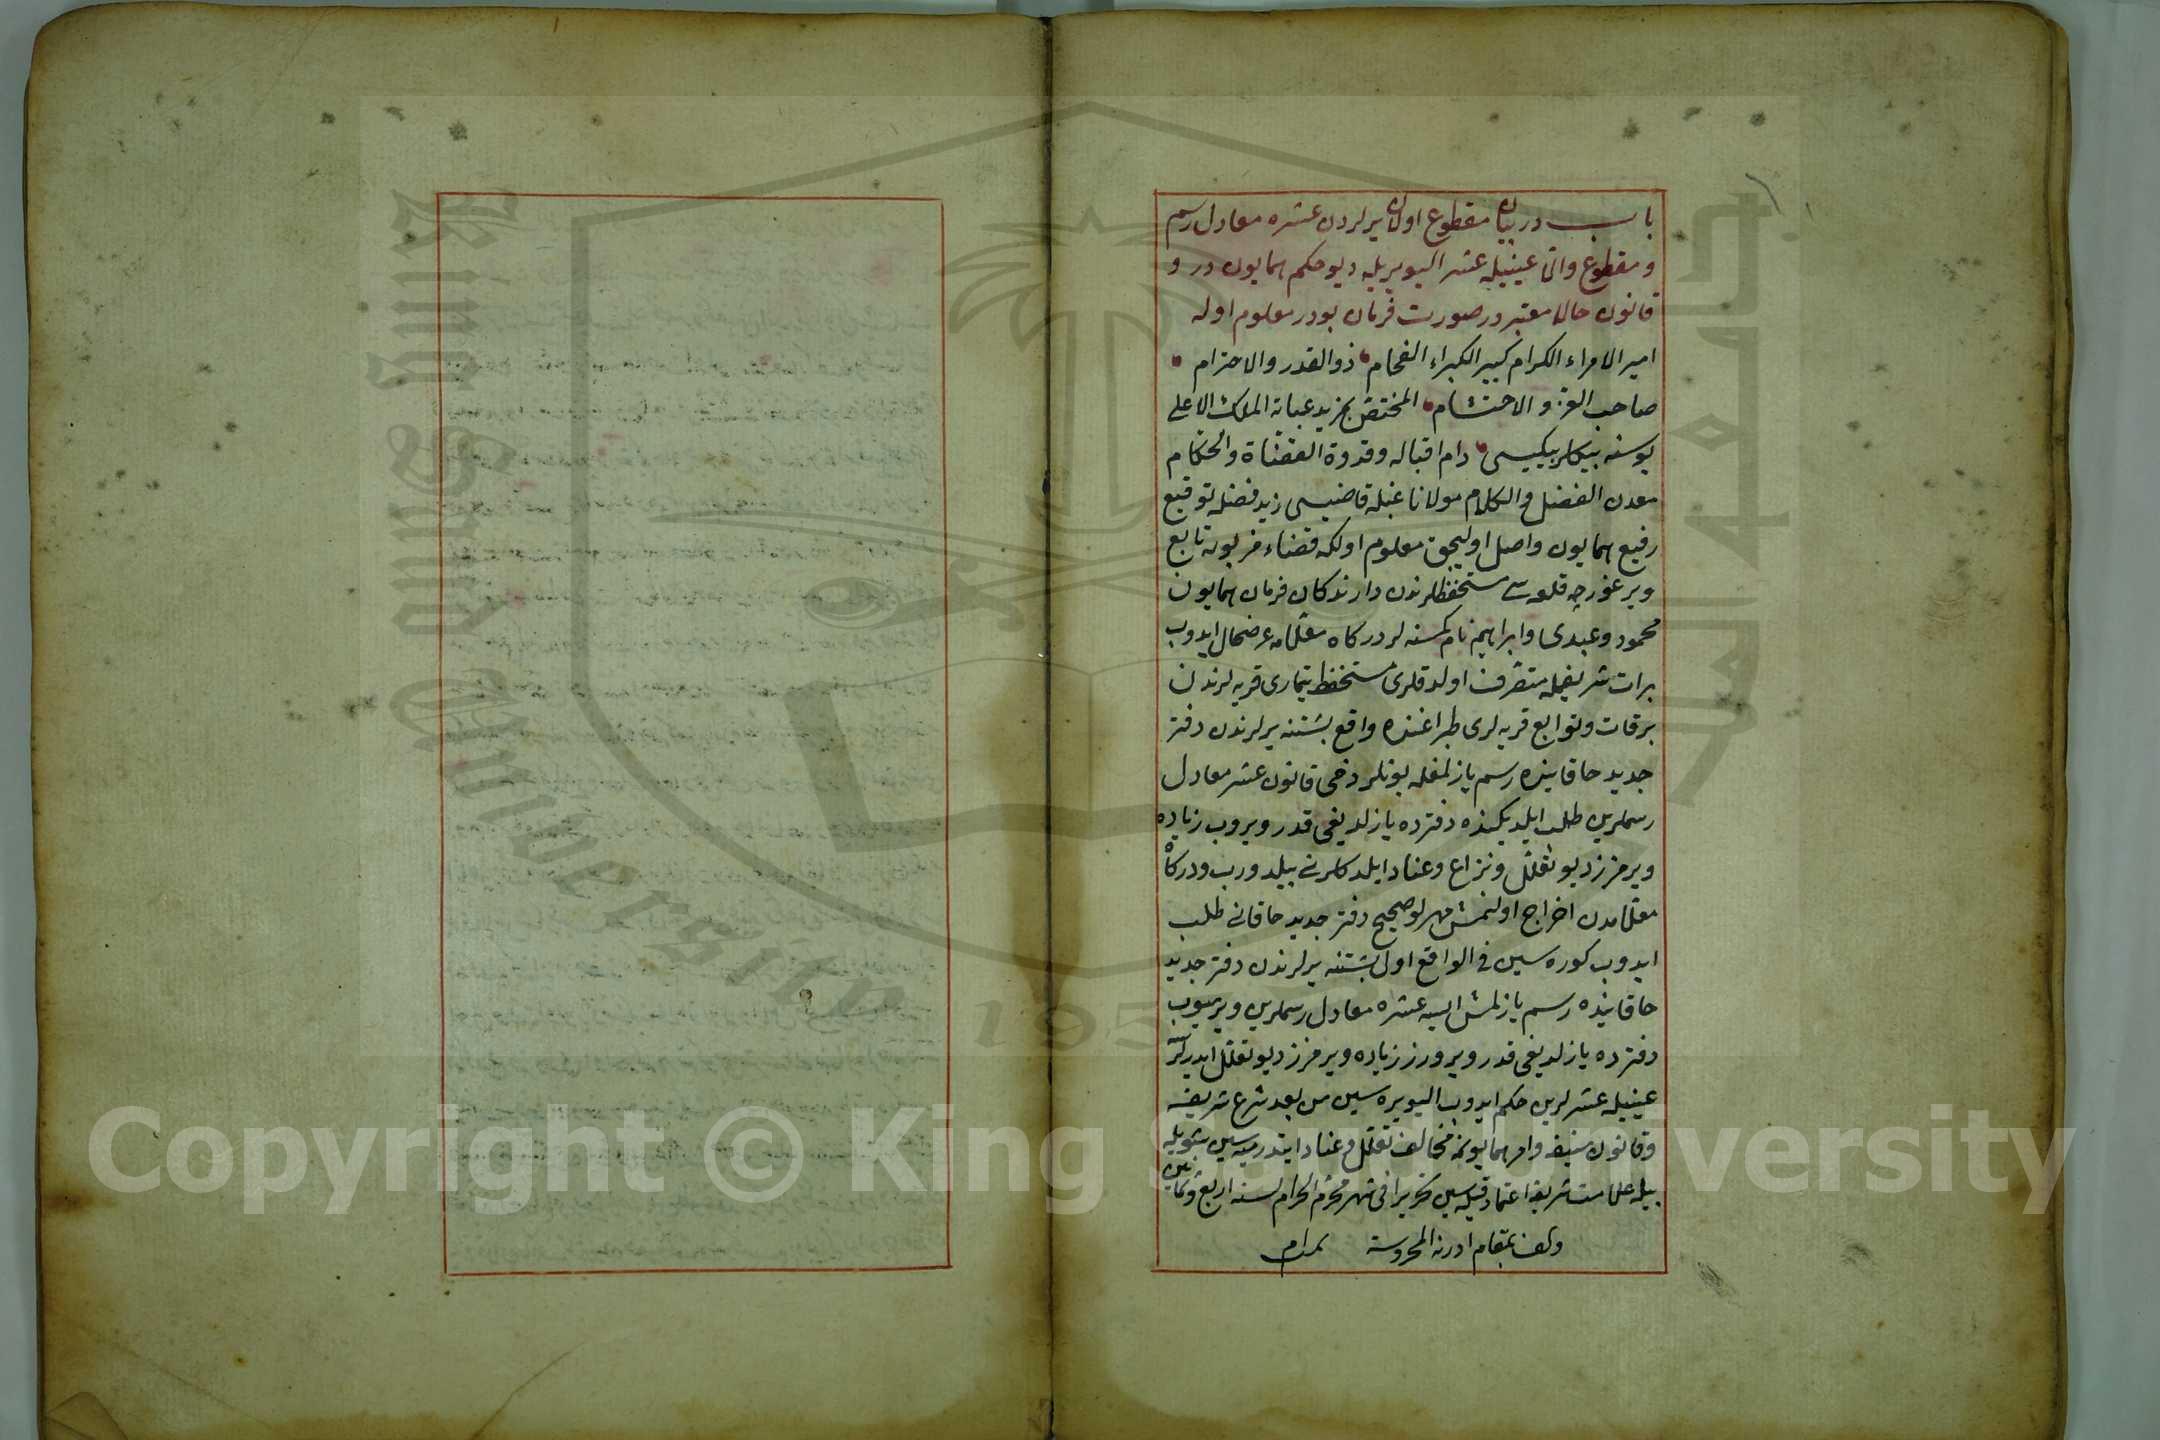 باب در بيان مقطوع اولان يرلردن عشره معادل رسم
و مقطوع والا عينيله عشر اليويريله ديو حكم همايون در و
قانون حالا معتبر در صورت فرمان بودر معلوم اوله
امير الامراء الكرام كبير الكبراء الفخام ذو القدر والاحترام
صاحب العز والاحتشام المختص بمزيد عناية الملك الاعلى
بوسنه بيكلربيكيسى دام اقباله وقدوة القضاة والحكام
معدن الفضل والكلام مولانا غبله قاضيسى زيد فضله توقيع
رفيع همايون واصل اوليجق معلوم اولكه قضاء مزبوره تابع
ويرغورچه قلعه سى مستحفظلرندن دارندكان فرمان همايون
محمود وعبدى وابراهيم نام كمسنه لر دركاه معلامه عرضحال ايدوب
برات شريفمله متصرف اولدقلرى مستحفظ تيمارى قريه لرندن
برقات وتوابع قريه لرى طپراغنده واقع بشتنه يرلرندن دفتر
جديد خاقانيده رسم يازلمغله بونلر دخى قانون عشر معادل
رسملرين طلب ايلديكلرنده دفترده يازلديغى قدر ويروب زياده
ويرمزز ديو تعلل ونزاع وعناد ايلدكلرن بيلدروب ودركاه
معلامدن اخراج اولنمش مهرلو صحيح دفتر جديد خاقانى طلب
ايدوب كوره سين فى الواقع اول بشتنه يرلرندن دفتر جديد
خاقانيده رسم يازلمش ايسه عشره معادل رسملرين ويرميوب
دفترده يازلديغى قدر ويرورز زياده ويرمزز ديو تعلل ايدرلرسه
عينيله عشرلرين حكم ايدوب اليويره سين من بعد شرع شريفه
وقانون منيفه وامر همايونمه مخالف تعلل وعناد ايتدرميه سين شويله
بيله علامت شريفه اعتماد قيله سين تحريرا فى شهر محرم الحرام لسنه اربع وثمانين
والف بمقام ادرنه المحروسه